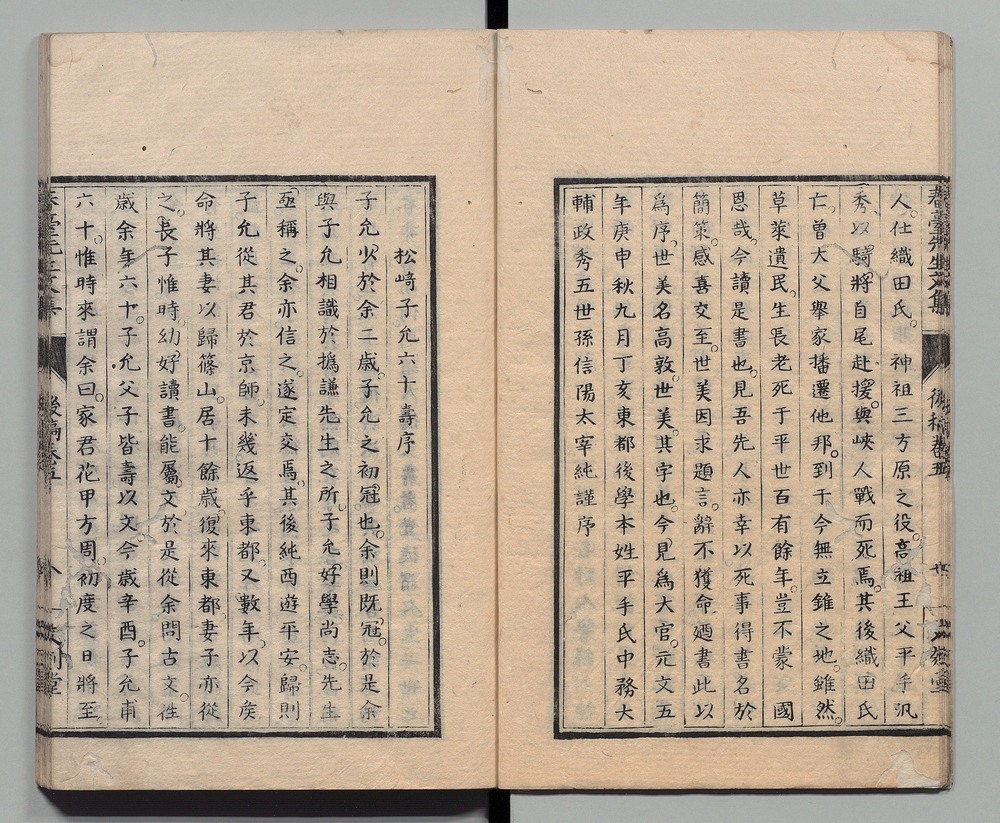 人仕織田氏。神祖三方原之役。高祖王父平手汎
秀以騎將自尾赴援。與峽人戰而死焉。其後織田氏
亡。曾大父舉家播遷他邦。到于今無立錐之地。雖然。
草萊遺民。生長老死于平世百有餘年。豈不蒙 國
恩哉。今讀是書也。見吾先人亦幸以死事得書名於
簡策。感喜交至。世美因求題言。辭不獲命。廼書此以
爲序。世美名高敦。世美。其字也。今見爲大官。元文五
年庚申秋九月丁亥東都後學本姓平手氏中務大
輔政秀五世孫信陽太宰純謹序
松﨑子允六十壽序
子允少於余二歳。子允之初冠也。余則既冠。於是余
與子允相識於撝謙先生之所。子允好學尚志。先生
亟稱之。余亦信之。遂定交焉。其後純西遊平安。歸則
子允從其君於京師。未幾返乎東都。又數年。以今矦
命將其妻以歸篠山。居十餘歳。復來東都。妻子亦從
之。長子惟時。幼好讀書。能屬文。於是從余問古文。往
歳余年六十。子允父子皆壽以文。今歳辛酉。子允甫
六十。惟時來謂余曰。家君花甲方周。初度之日將至。
春臺先生文集
後稿卷五